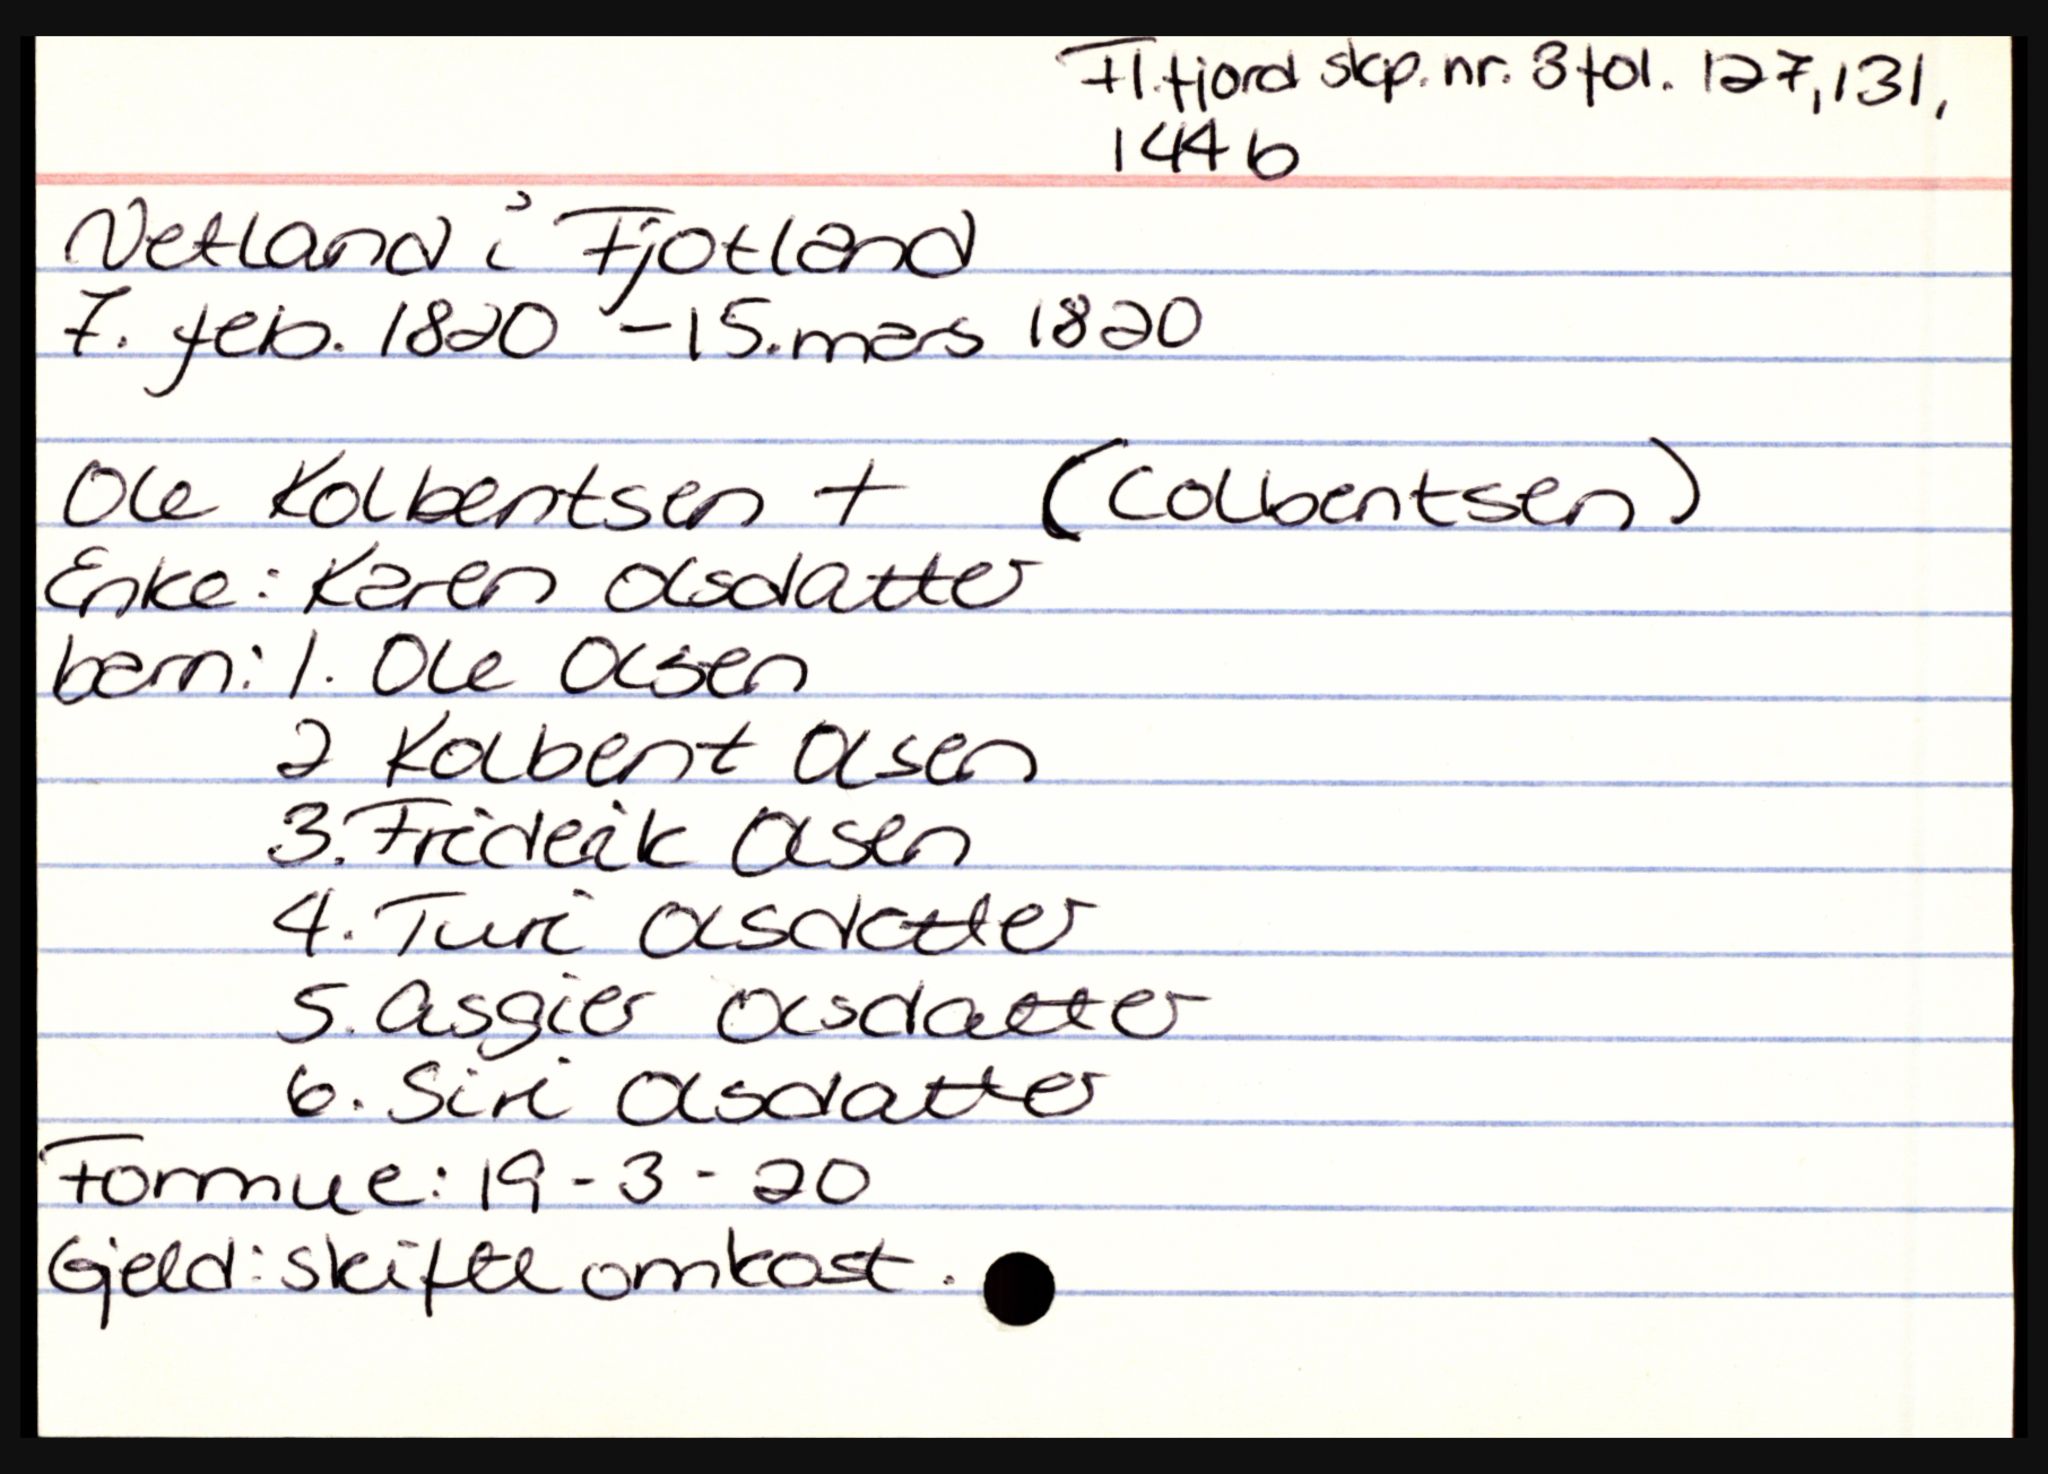 Fl.fjord skp. nr. 3 fol. 127, 131,
144 b
Netland i Fjotland
7. feb. 1820 - 15. mars 1820
Ole Kolbentsen + (Colbentsen)
Enke: Karen Olsdatter
barn: 1. Ole Olsen
2 Kolbent Olsen
3. Friderik Olsen
4. Turi Olsdatter
5. Asgier Olsdatter
6. Siri Olsdatter
Formue: 19 - 3 - 20
Gjeld: skifte omkost.